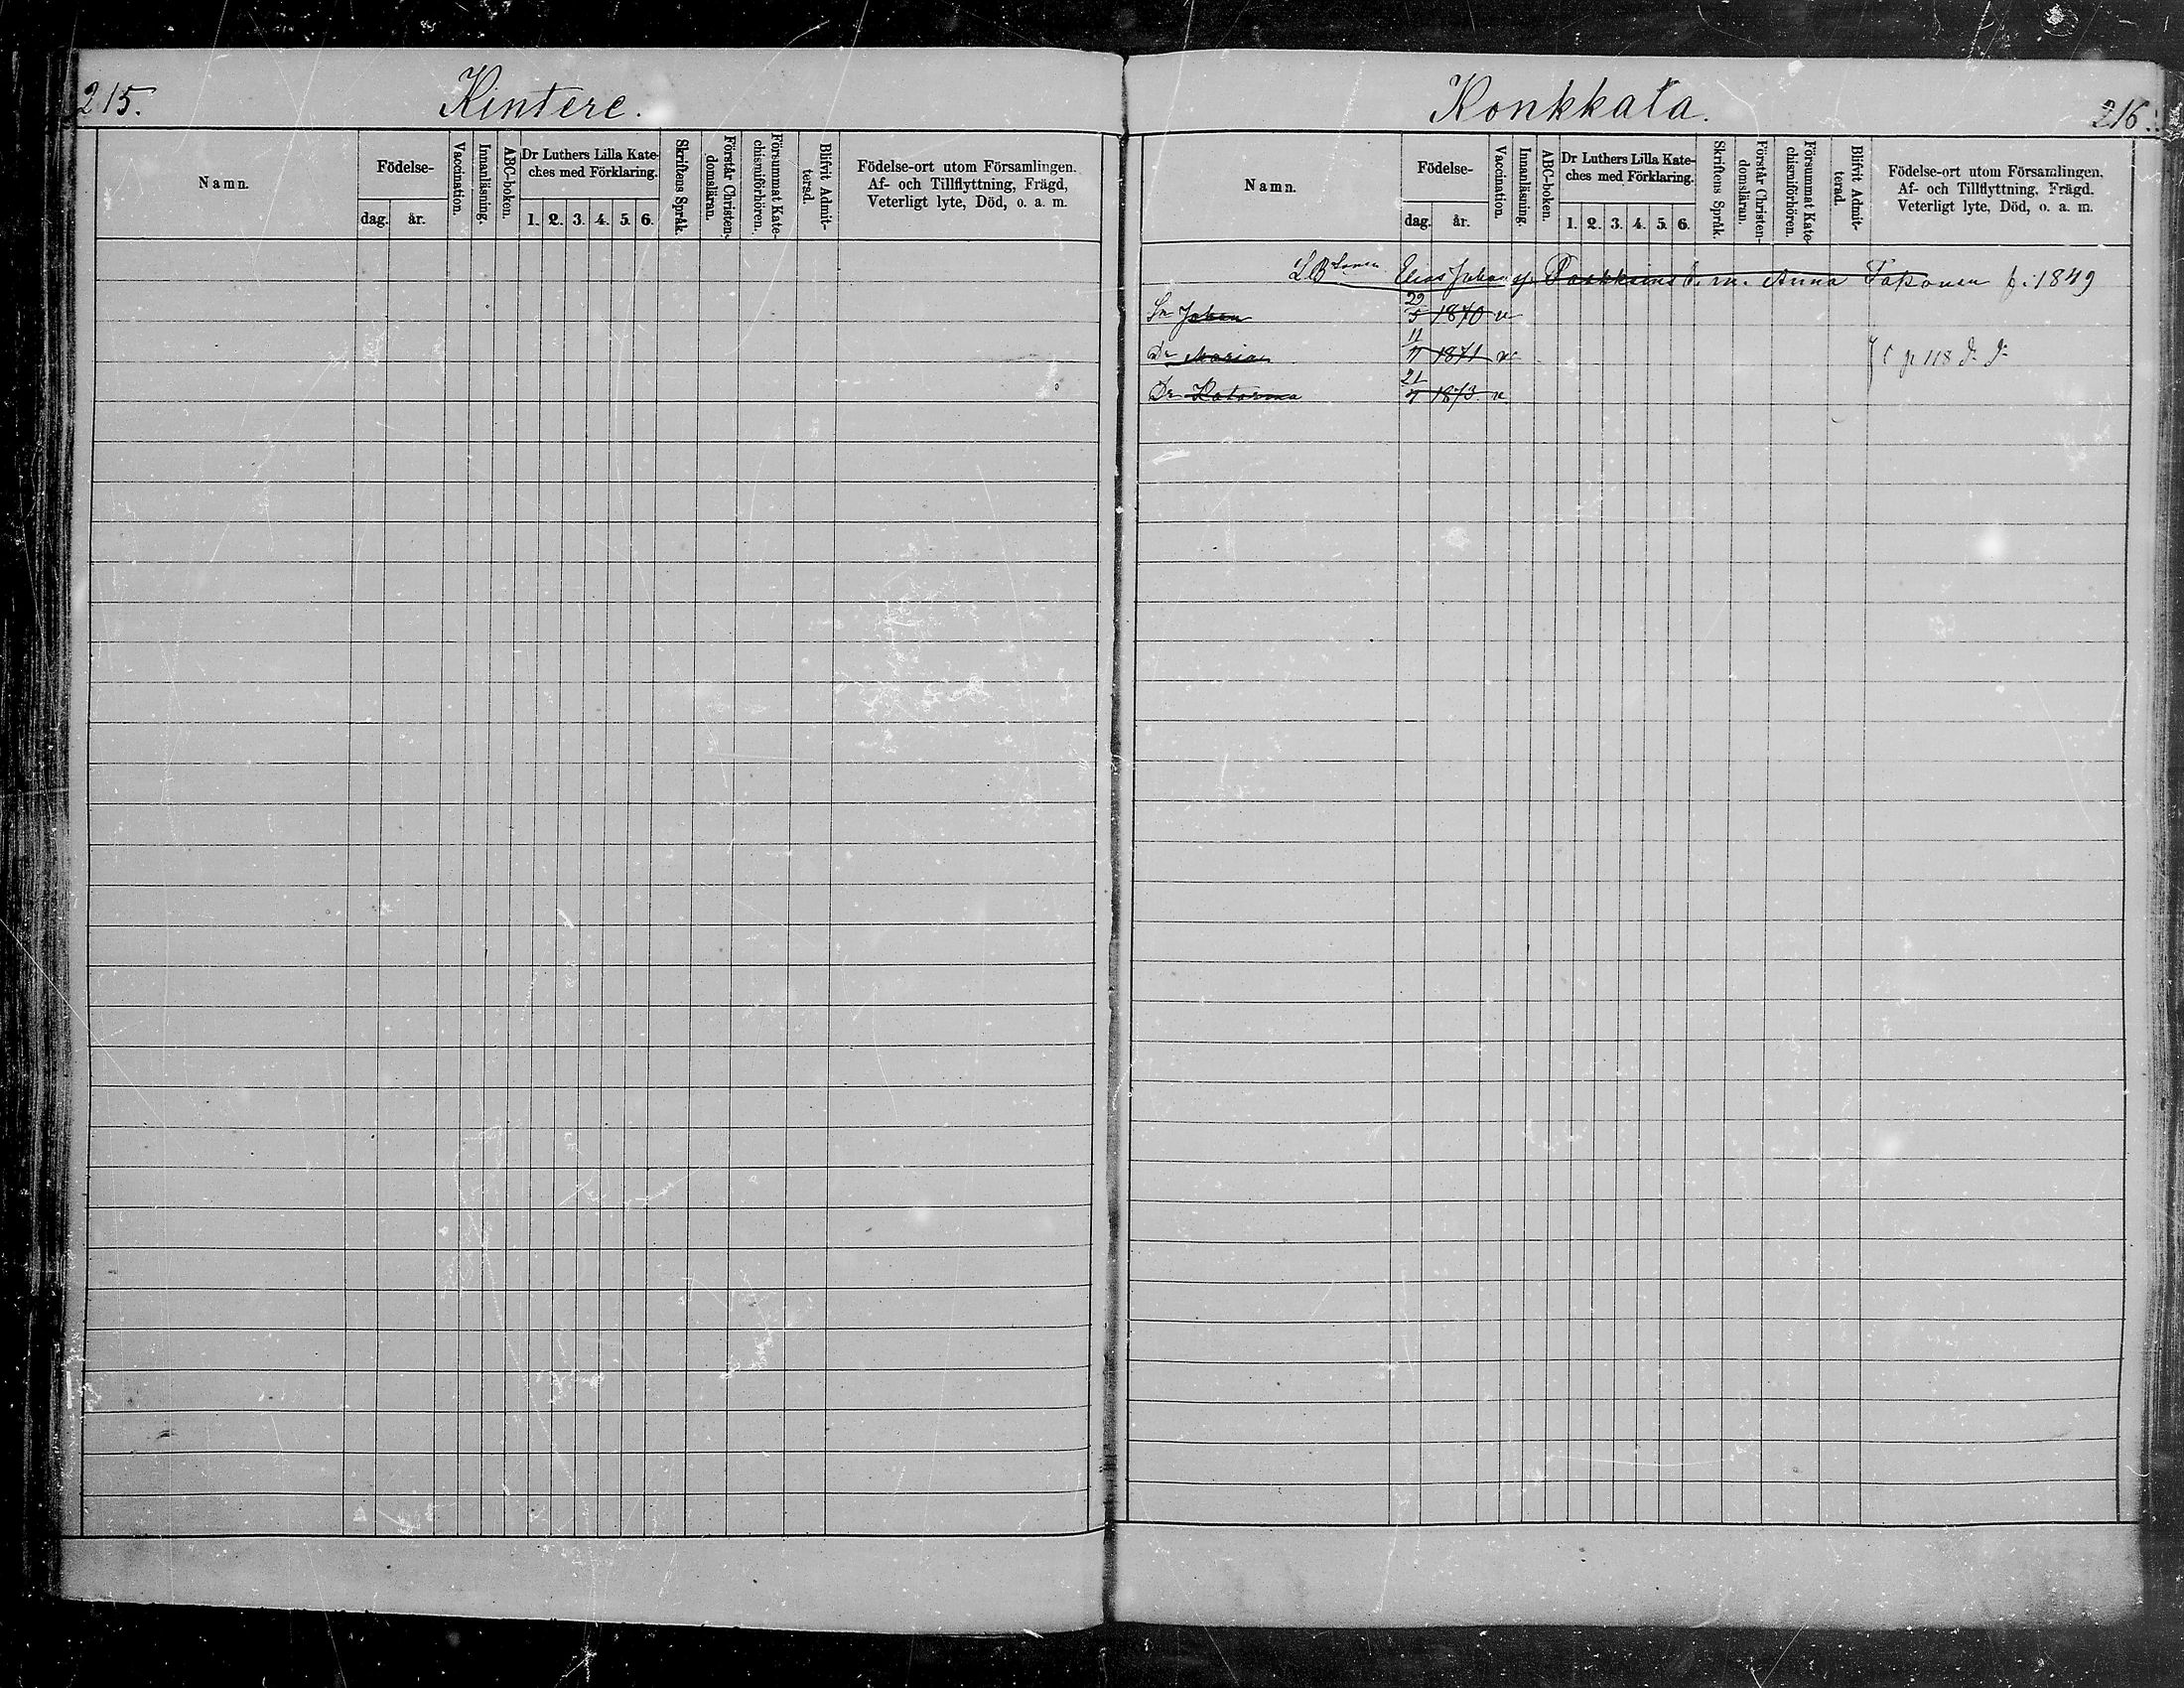 215.
Kintere.
Namn.
Födelse-
dag.
år.
Vaccination.
Innanläsning.
ABC-boken.
Dr Luthers Lilla Kate-
ches med Förklaring.
1. 2. 3. 4. 5. 6.
Skriftens Språk.
Förstår Christen-
domsläran.
Försummat Kate-
chismiförhören.
Blifvit Admit-
terad.
Födelse-ort utom Församlingen.
Af- och Tillflyttning, Frägd,
Veterligt lyte, Död, o. a. m.
Konkkala.
216.
Namn.
Födelse-
dag.
år.
Vaccination.
Innanläsning.
ABC-boken.
Dr Luthers Lilla Kate-
ches med Förklaring.
1. 2. 3. 4. 5. 6.
Skriftens Språk.
Förstår Christen-
domsläran.
Försummat Kate-
chismiförhören.
Blifvit Admit-
terad.
Födelse-ort utom Församlingen.
Af- och Tillflyttning, Frägd.
Veterligt lyte, Död, o. a. m.
Elias Johan m. Anna f. 1849
Sr Johan 29/5 1870 v
Dr Maria 11/4 1871 v
p 118
Dr Katarina 21/4 1873 v